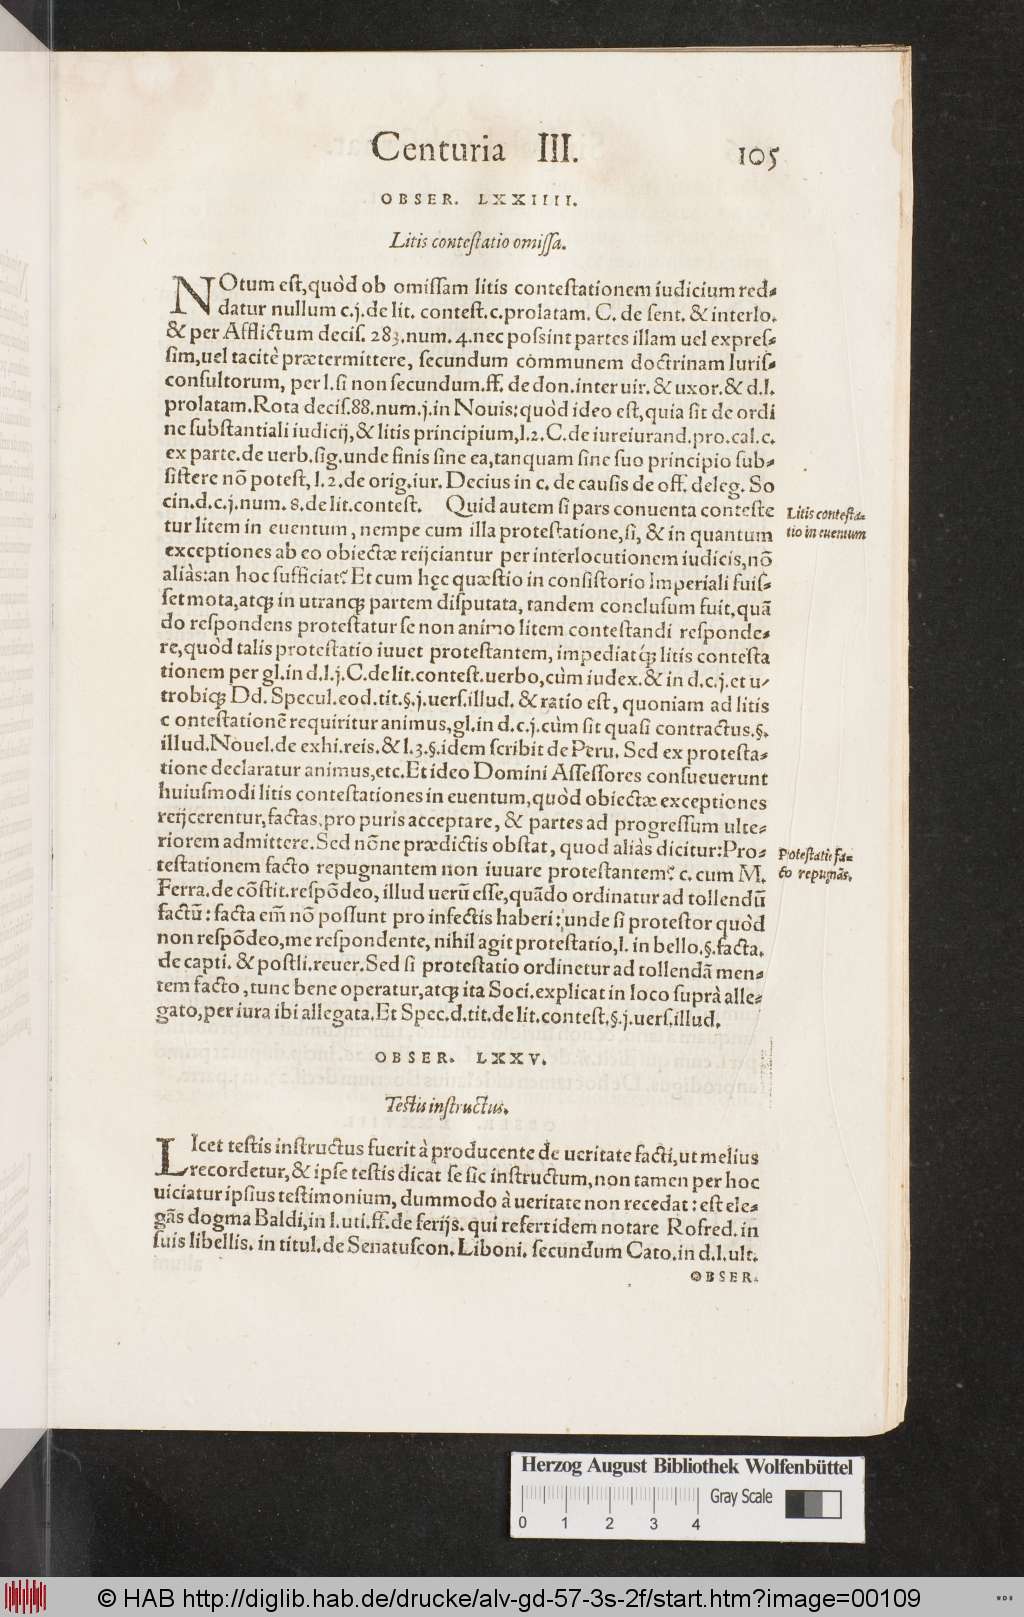 Centuria III. 105
OBSER. LXXIIII.
Litis contestatio omissa.
NOtum est,quòd ob omissam litis contestationem iudicium red-
datur nullum c.j.de lit. contest.c.prolatam. C. de sent. & interlo.
& per Afflictum decis. 283.num. 4.nec possint partes illam uel expres-
sim,uel tacitè prætermittere, secundum cōmunem doctrinam Iuris-
consultorum, per l.si non secundum.ff. de don.inter uir. & uxor.& d.l.
prolatam.Rota decis.88.num.j.in Nouis:quòd ideo est,quia sit de ordi
ne substantiali iudicij,& litis principium,l.2.C.de iureiurand.pro.cal.c.
ex parte.de uerb.sig.unde finis sine ea,tanquam sine suo principio sub-
sistere nō potest, l.2.de orig.iur. Decius in c. de causis de off. deleg. So
cin.d.c.j.num. 8.de lit.contest. Quid autem si pars conuenta conteste
tur litem in euentum, nempe cum illa protestatione,si, & in quantum
exceptiones ab eo obiectæ reijciantur per interlocutionem iudicis,nō
aliàs:an hoc sufficiat? Et cum hęc quæstio in consistorio Imperiali fuis-
set mota,atq; in utranq; partem disputata, tandem conclusum fuit,quā
do respondens protestatur se non animo litem contestandi responde-
re,quòd talis protestatio iuuet protestantem, impediatq́; litis contesta
tionem per gl.in d.l.j.C.de lit.contest.uerbo,cùm iudex.& in d.c.j.et u-
trobiq; Dd. Specul.eod.tit.§.j.uers.illud. & ratio est, quoniam ad litis
c ontestationē requiritur animus,gl.in d.c.j.cùm sit quasi contractus.§.
illud.Nouel.de exhi.reis.& l.3.§.idem scribit de Peru. Sed ex protesta-
tione declaratur animus,etc.Et ideo Domini Assessores consueuerunt
huiusmodi litis contestationes in euentum,quòd obiectæ exceptiones
reijcerentur,factas,pro puris acceptare, & partes ad progressum ulte-
riorem admittere.Sed nōne prædictis obstat, quod aliàs dicitur:Pro-
testationem facto repugnantem non iuuare protestantem? c. cum M.
Ferra.de cōstit.respōdeo, illud uerū esse,quādo ordinatur ad tollendū
factū: facta em̄ nō possunt pro infectis haberi: unde si protestor quòd
non respōdeo,me respondente, nihil agit protestatio,l. in bello.§.facta.
de capti. & postli.reuer.Sed si protestatio ordinetur ad tollendā men-
tem facto, tunc bene operatur,atq; ita Soci.explicat in loco suprà alle-
gato,per iura ibi allegata.Et Spec.d.tit.de lit.contest.§.j.uers.illud.
Litis contesta-
tio in euentum
Protestatio fa-
cto repugnās.
OBSER. LXXV.
Testis instructus.
LIcet testis instructus fuerit à producente de ueritate facti,ut melius
recordetur,& ipse testis dicat se sic instructum,non tamen per hoc
uiciatur ipsius testimonium, dummodo à ueritate non recedat: est ele-
gās dogma Baldi,in l.uti.ff.de ferijs. qui refert idem notare Rofred. in
suis libellis. in titul.de Senatuscon. Liboni. secundum Cato.in d.l.ult.
OBSER.
Herzog August Bibliothek Wolfenbüttel
Gray Scale
0 1 2 3 4
© HAB http://diglib.hab.de/drucke/alv-gd-57-3s-2f/start.htm?image=00109